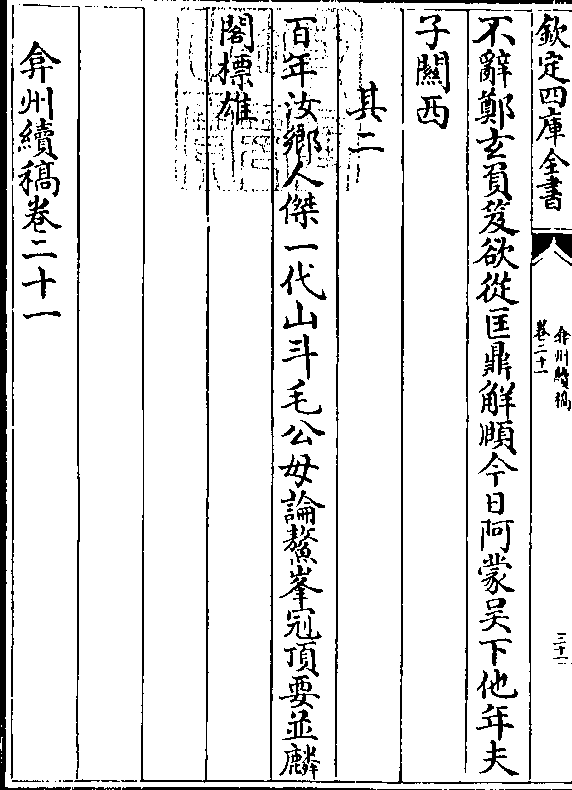 欽定四庫全書
弇州續稿
卷二十一
三十一
不辭鄭玄負笈欲從匡鼎解頤今日阿蒙吴下他年夫
子關西
其二
百年汝鄉人傑一代山斗毛公毋論鰲峯冠頂要並麟
閣標雄
弇州續稿卷二十一